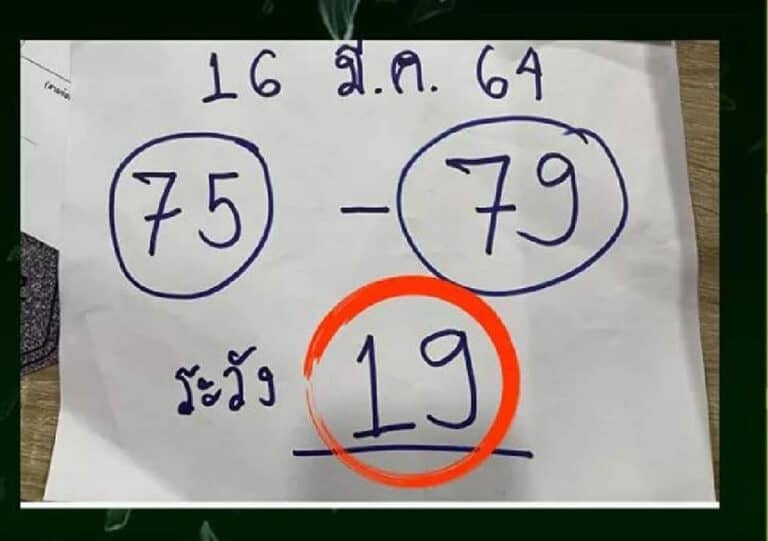 16 มี.ค. 64
75 - 79
ระวัง 19